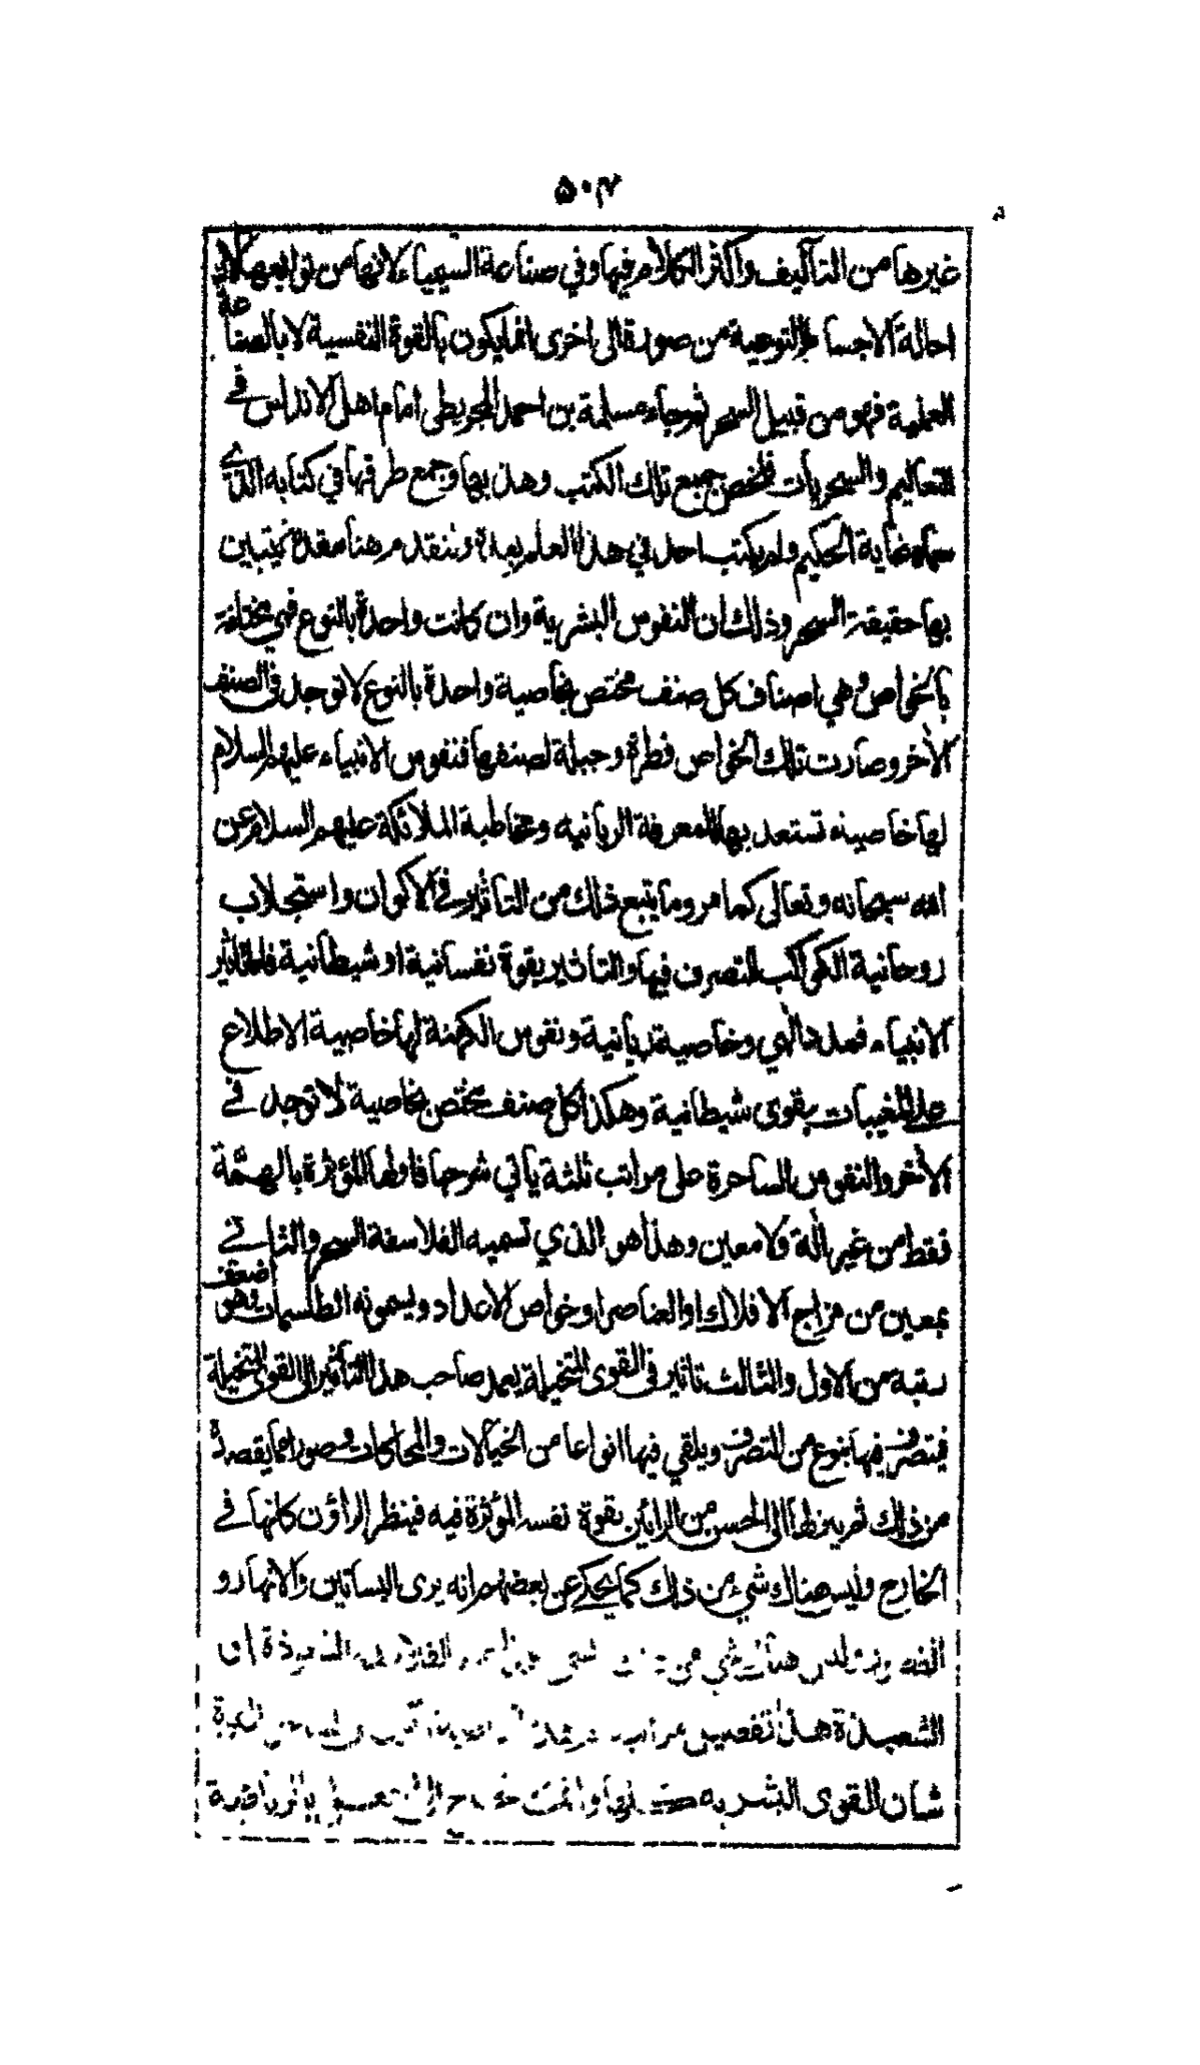 ۵۰۴
غيرها من التآليف واكثر الكلام فيها وفي صناعة السيمياء لانها من توابعها لان
احالة الاجسام النوعية من صورة الى اخرى انما يكون بالقوة النفسية لا بالصناعة
العلمية فهو من قبيل السحر ثم جاء مسلمة بن احمد المجريطي امام اهل الاندلس في
التعاليم والسحريات فلخص جميع تلك الكتب وهذبها وجمع طرقها في كتابه الذي
سماه غاية الحكيم ولم يكتب احد في هذا العلم بعده ولنقدم هنا مقدمة يتبين
بها حقيقة السحر وذلك ان النفوس البشرية وان كانت واحدة بالنوع فهي مختلفة
بالخواص وهي اصناف كل صنف مختص بخاصية واحدة بالنوع لا توجد في الصنف
الآخر وصارت تلك الخواص فطرة وجبلة لصنفها فنفوس الانبياء عليهم السلام
لها خاصية تستعد بها للمعرفة الربانية ومخاطبة الملائكة عليهم السلام عن
الله سبحانه وتعالى كما مر وما يتبع ذلك من التاثير في الاكوان واستجلاب
روحانية الكواكب للتصرف فيها والتاثير بقوة نفسانية او شيطانية فاما تاثير
الانبياء فمدد الهي وخاصية ربانية ونفوس الكهنة لها خاصية الاطلاع
على المغيبات بقوى شيطانية وهكذا كل صنف مختص بخاصية لا توجد في
الآخر والنفوس الساحرة على مراتب ثلثة ياتي شرحها فاولها المؤثرة بالهمّة
فقط من غير الة ولا معين وهذا هو الذي تسميه الفلاسفة السحر والثاني
بمعين من مزاج الافلاك او العناصر او خواص الاعداد ويسمونه الطلسمات وهو اضعف
رتبة من الاول والثالث تاثير في القوى المتخيلة يعمد صاحب هذا التأثير الى القوى المتخيلة
فيتصرف فيها بنوع من التصرف ويلقي فيها انواعا من الخيالات والمحاكات وصورا مما يقصده
من ذلك ثم ينزلها الى الحس من الرائين بقوة نفسه المؤثرة فيه فينظر الراؤن كانها في
الخارج وليس هناك شيء من ذلك كما يحكى عن بعضهم انه يرى البساتين والانهار و
وليس هناك شي من الشعوذة او
الشعبذة هذا تفصيل مراتبه
شان القوى البشرية بالرياضة